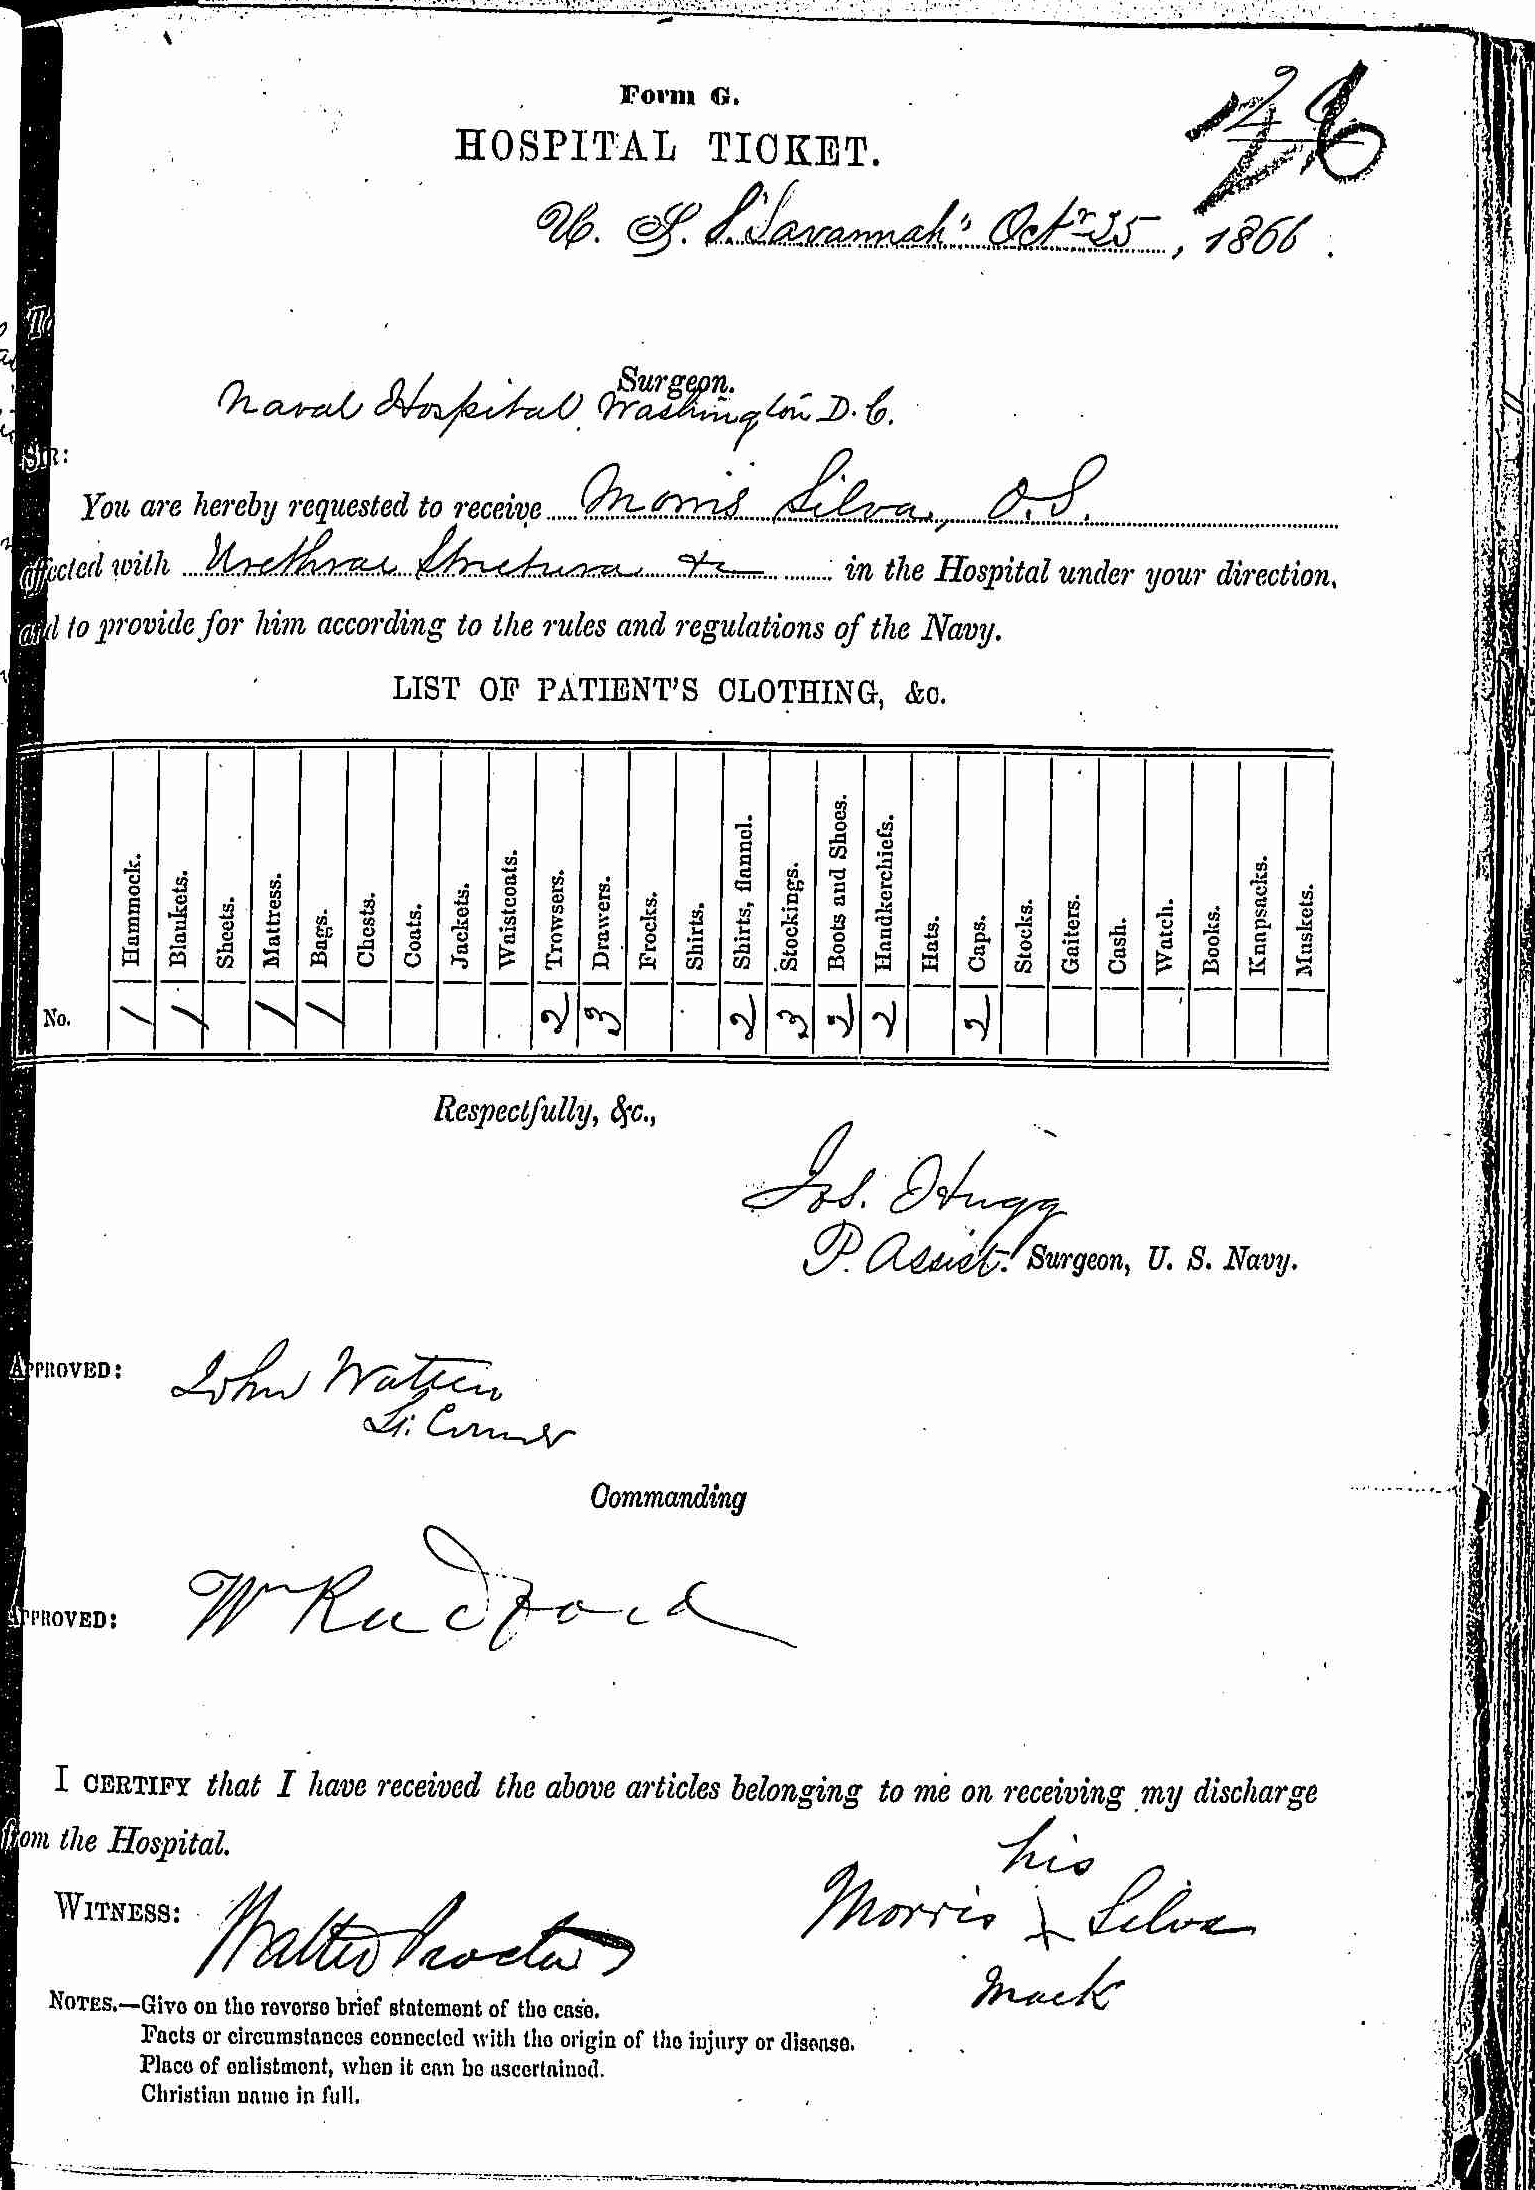 Form G.
HOSPITAL TICKET.
26
U. S. S. "Savannah" Octr 25, 1866.
To
Surgeon.
Naval Hospital, Washington D. C.
SIR:
You are hereby requested to receive Morris Silva, O.S.
affected with Urethrae Strictura &c in the Hospital under your direction,
and to provide for him according to the rules and regulations of the Navy.
LIST OF PATIENT'S CLOTHING, &c.
Hammock. Blankets. Sheets. Mattress. Bags. Chests. Coats. Jackets. Waistcoats. Trowsers. Drawers. Frocks. Shirts. Shirts, flannel. Stockings. Boots and Shoes. Handkerchiefs. Hats. Caps. Stocks. Gaiters. Cash. Watch. Books. Knapsacks. Muskets.
No. 1 1 1 1 2 3 2 3 2 2 2
Respectfully, &c.,
Jos. Hugg
P. Assist. Surgeon, U. S. Navy.
APPROVED: John Watten
Lt. Comdr
Commanding
APPROVED: Wm Radford
I CERTIFY that I have received the above articles belonging to me on receiving my discharge
from the Hospital.
his
WITNESS: Walter Proctor Morris x Silva
mark
NOTES.—Give on the reverse brief statement of the case.
Facts or circumstances connected with the origin of the injury or disease.
Place of enlistment, when it can be ascertained.
Christian name in full.